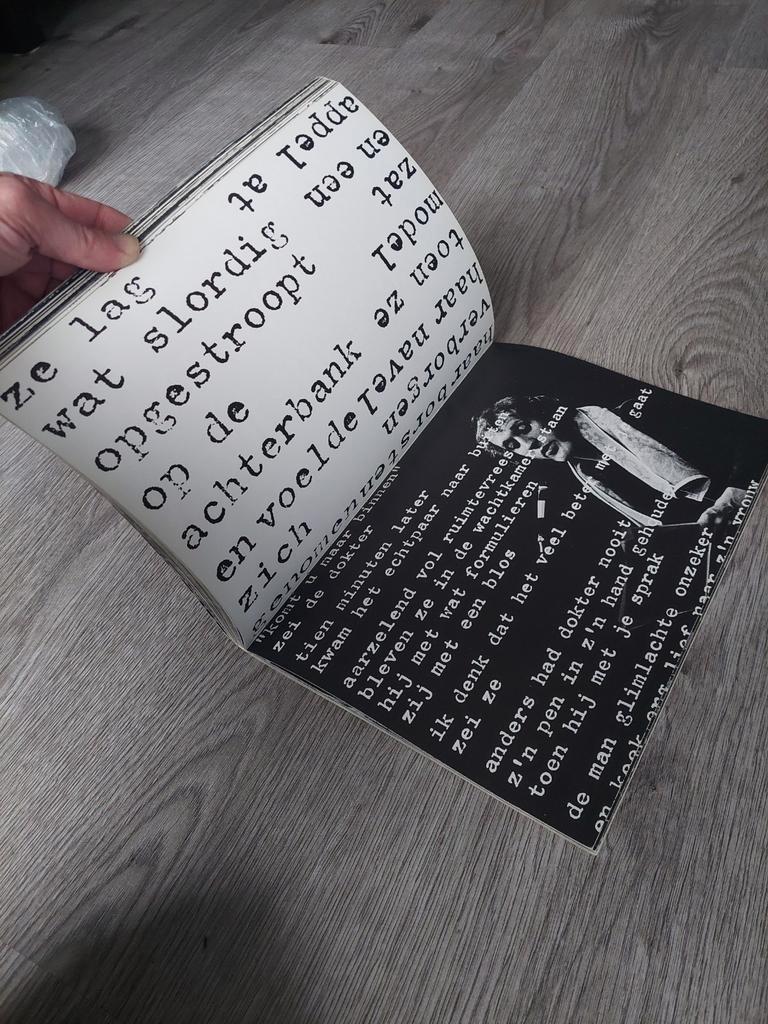 ze lag
wat slordig
opgestroopt
op de
achterbank
en voelde
zich
genomen
haar borsten
verborgen
haar navel
toen ze
model
zat
en een
appel at
"komt u maar binnen"
zei de dokter
tien minuten later
kwam het echtpaar naar buiten
aarzelend vol ruimtevrees
bleven ze in de wachtkamer staan
hij met wat formulieren
zij met een blos
ik denk dat het veel beter me gaat
zei ze
anders had dokter nooit
z'n pen in z'n hand gehouden
toen hij met je sprak
de man glimlachte onzeker
en keek erg lief naar z'n vrouw